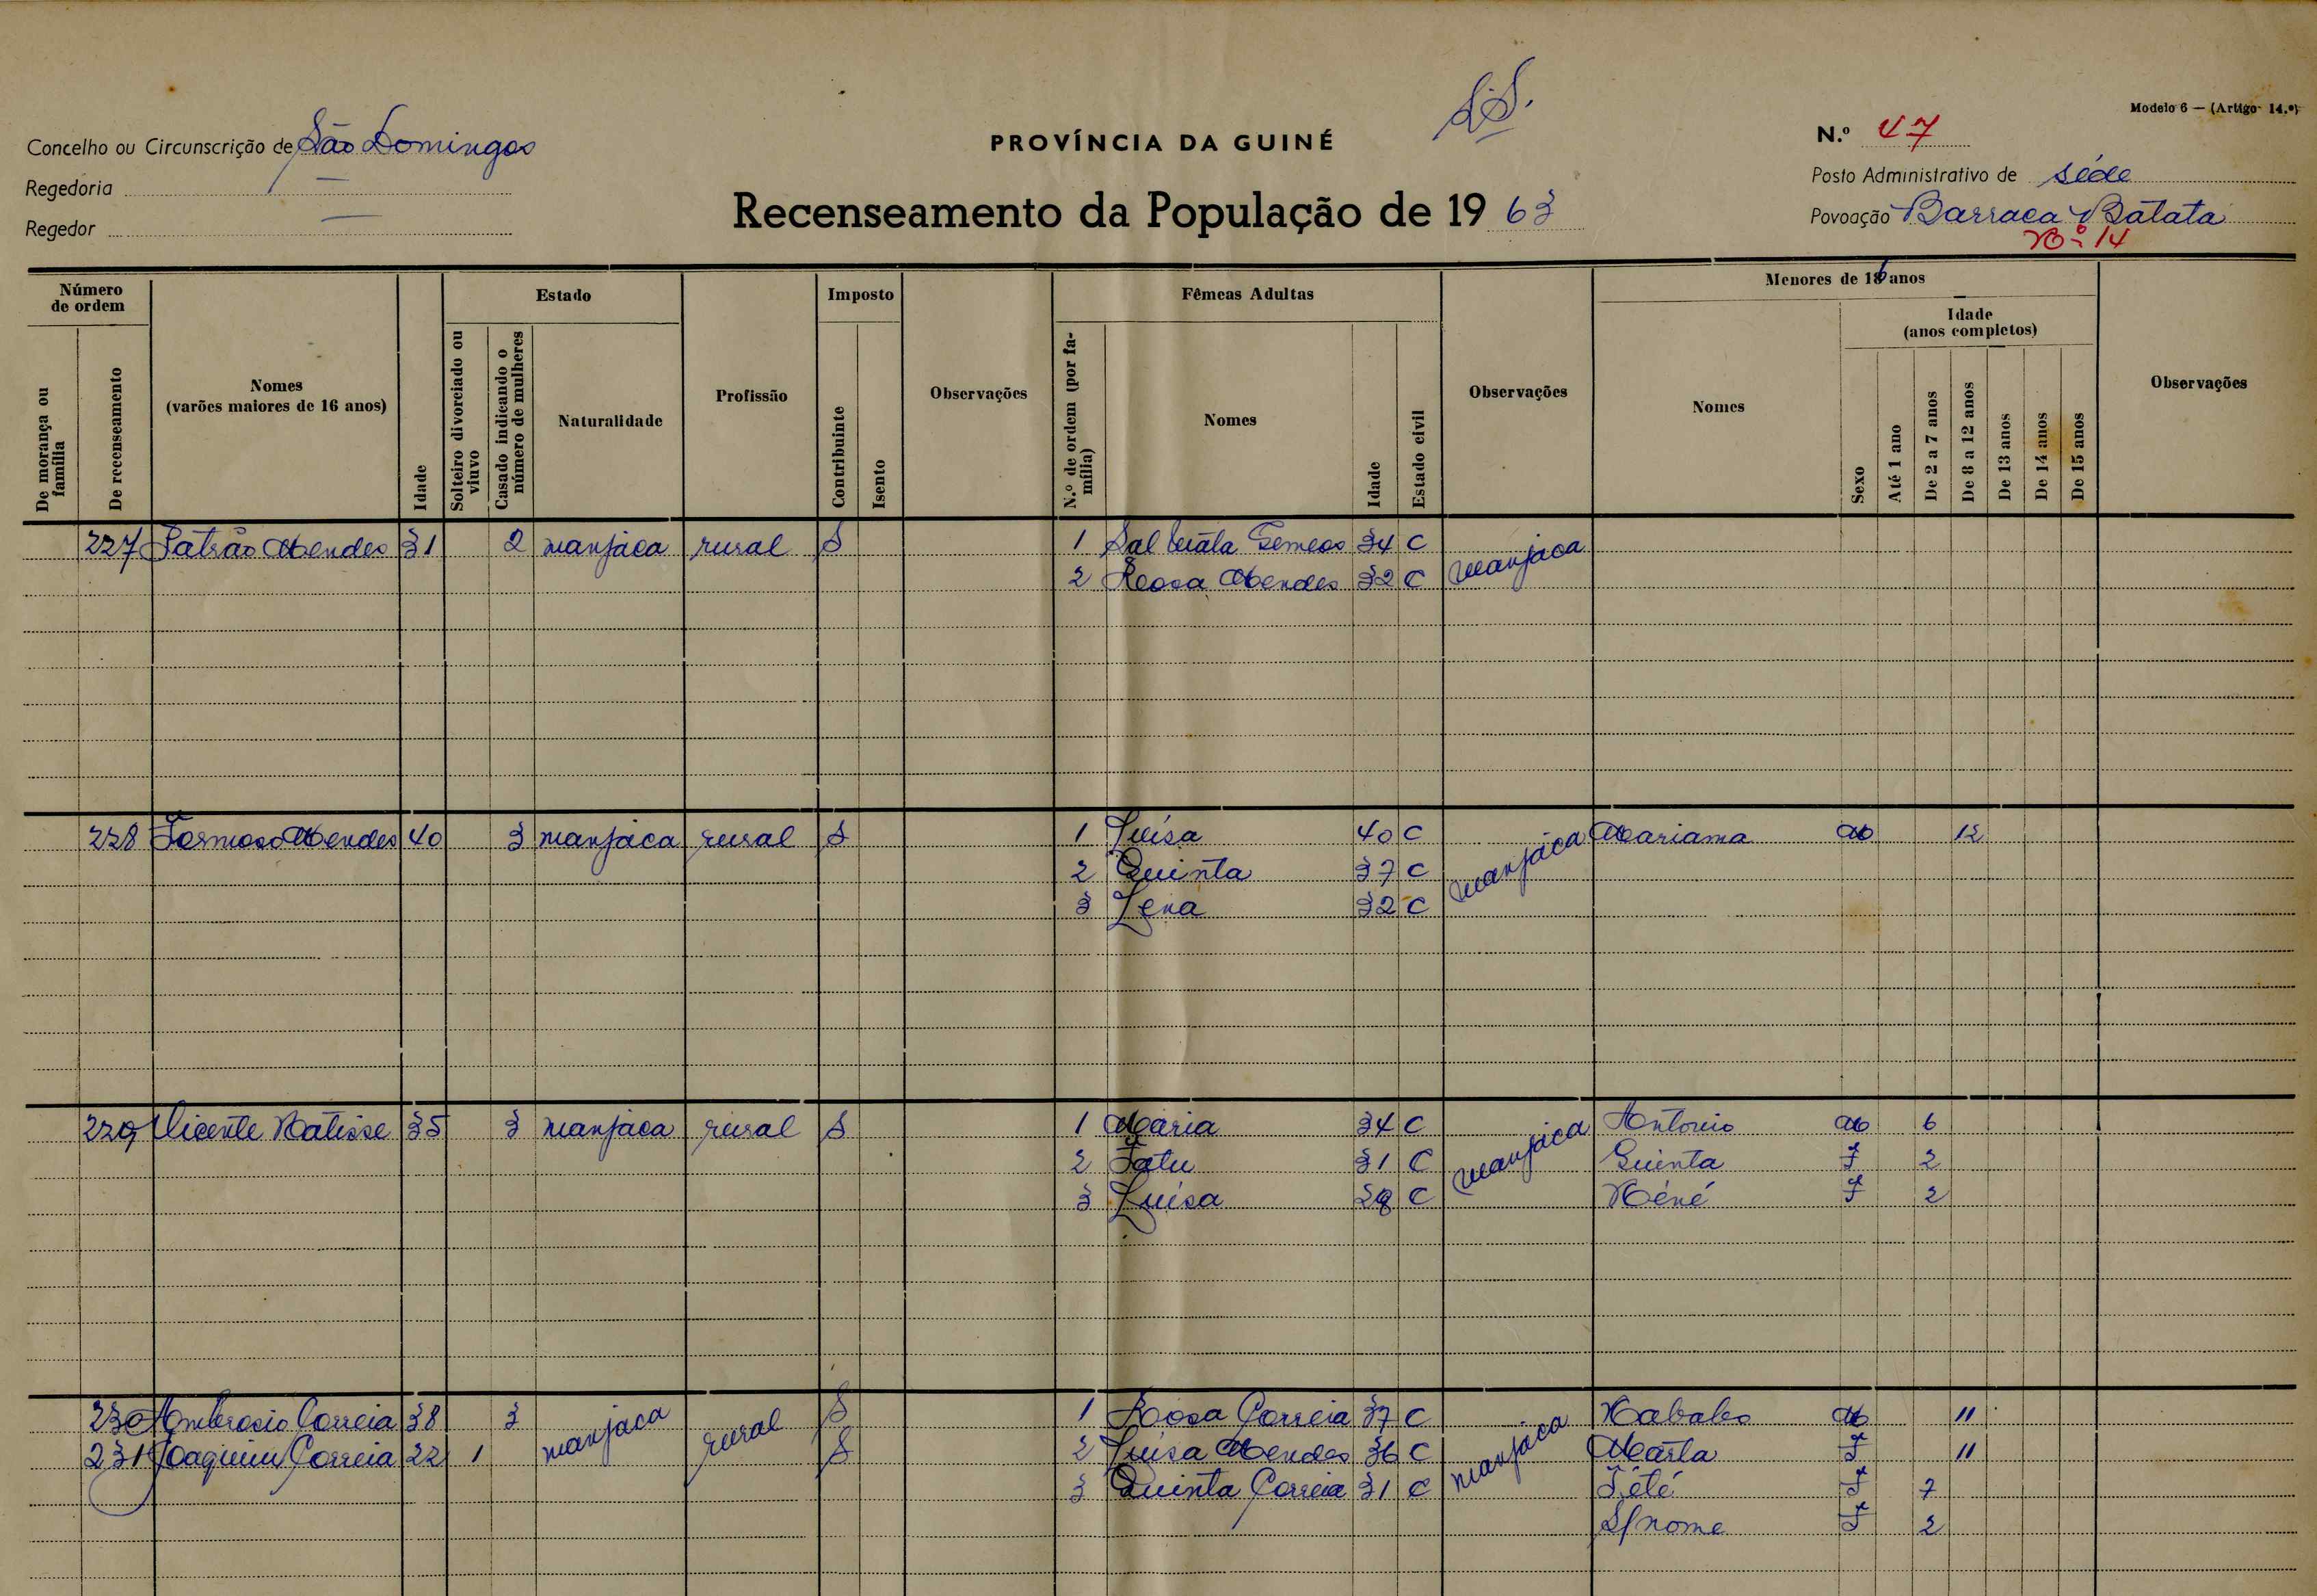 S.S.
Modelo 6 — (Artigo 14.º)
Concelho ou Circunscrição de São Domingos
PROVÍNCIA DA GUINÉ
N.º 47
Regedoria —
Posto Administrativo de séde
Regedor —
Recenseamento da População de 1963
Povoação Barraca Batata
Nº 14
Número de ordem
De morança ou família
De recenseamento
Nomes (varões maiores de 16 anos)
Idade
Estado
Solteiro divorciado ou viuvo
Casado indicando o número de mulheres
Naturalidade
Profissão
Imposto
Contribuinte
Isento
Observações
Fêmeas Adultas
N.º de ordem (por família)
Nomes
Idade
Estado civil
Observações
Menores de 16 anos
Nomes
Idade (anos completos)
Sexo
Até 1 ano
De 2 a 7 anos
De 8 a 12 anos
De 13 anos
De 14 anos
De 15 anos
Observações
227 Patrão Mendes 31 2 manjaca rural S 1 34 C manjaca
2 Rosa Mendes 32 C
228 Formoso Mendes 40 3 manjaca rural S 1 Luísa 40 C manjaca Mariama M 12
2 Quinta 37 C
3 Zena 32 C
229 Vicente Natisse 35 3 manjaca rural S 1 Maria 34 C manjaca Antonio M 6
2 Fatu 31 C Quinta F 2
3 Luísa 28 C Néné F 2
230 Ambrosio Correia 38 3 manjaca rural S 1 Rosa Correia 37 C manjaca Nababo M 11
231 Joaquim Correia 22 1 S 2 Luísa Mendes 36 C Marta F 11
3 Quinta Correia 31 C Tété F 7
S/nome F 2